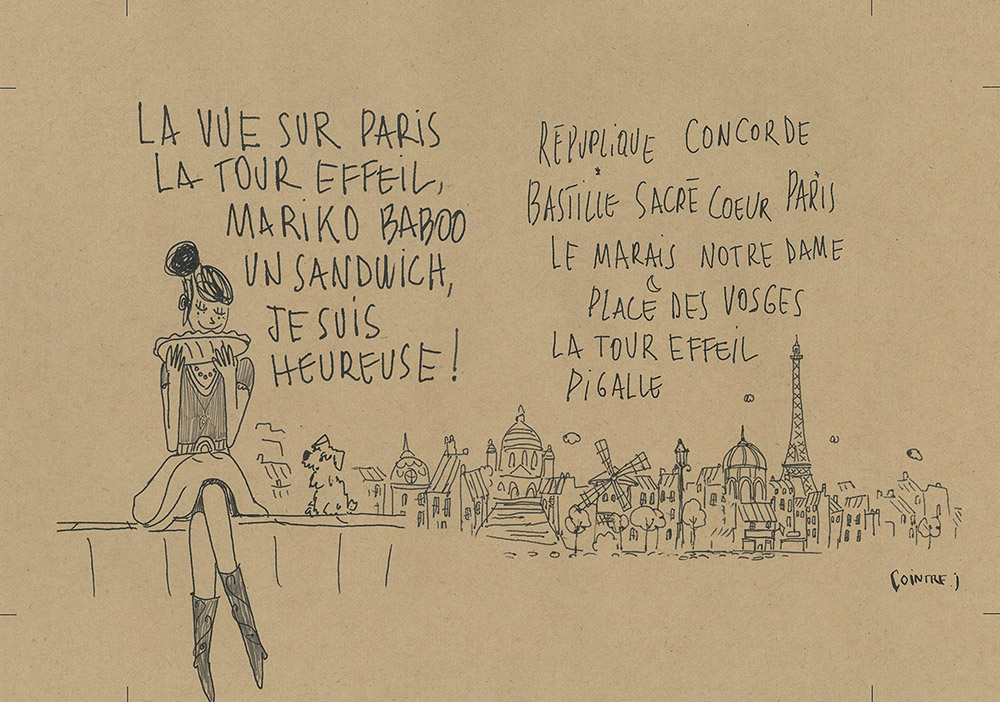 LA VUE SUR PARIS
LA TOUR EFFEIL,
MARIKO BABOO
UN SANDWICH,
JE SUIS
HEUREUSE !
REPUPLIQUE CONCORDE
BASTILLE SACRÉ COEUR PARIS
LE MARAIS NOTRE DAME
PLACE DES VOSGES
LA TOUR EFFEIL
PIGALLE
COINTRE.J